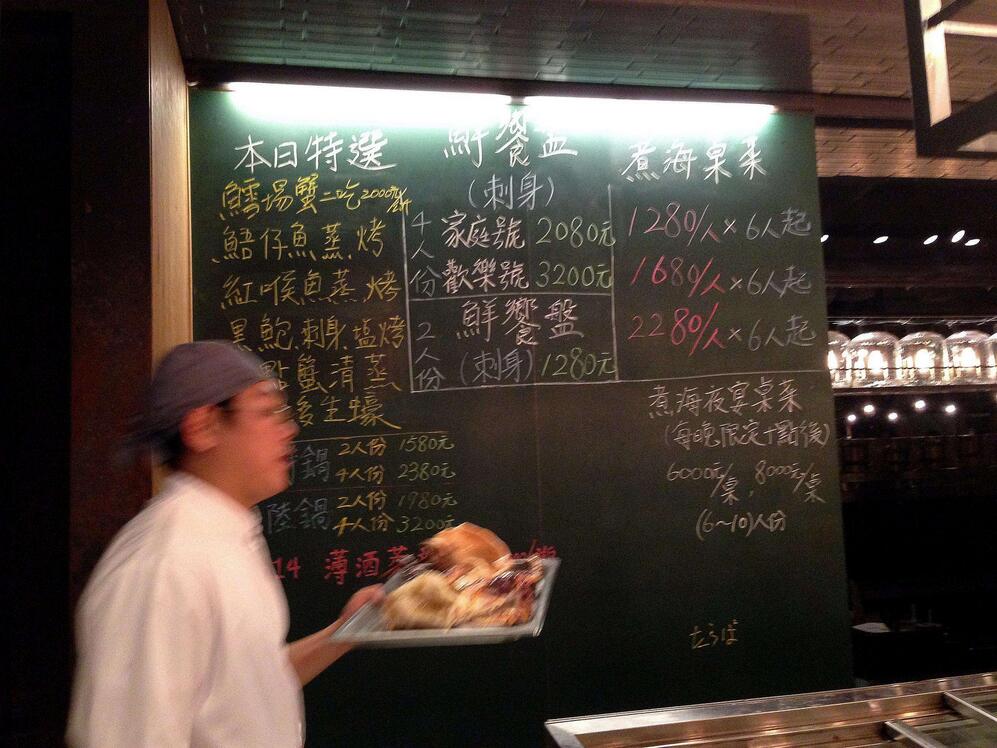 本日特選
鱈場蟹二吃2000元/斤
鯃仔魚蒸.烤
紅喉魚蒸.烤
黑鮑.刺身.塩烤
點蟹清蒸
生蠔
鍋 2人份 1580元
4人份 2380元
陸鍋 2人份 1980元
4人份 3200元
14 薄酒
鮮饗盤
(刺身)
4人份
家庭號 2080元
歡樂號 3200元
2人份
鮮饗盤
(刺身) 1280元
煮海桌菜
1280/人×6人起
1680/人×6人起
2280/人×6人起
煮海夜宴桌菜
(每晚限定十點後)
6000元/桌，8000元/桌
(6~10)人份
たらば